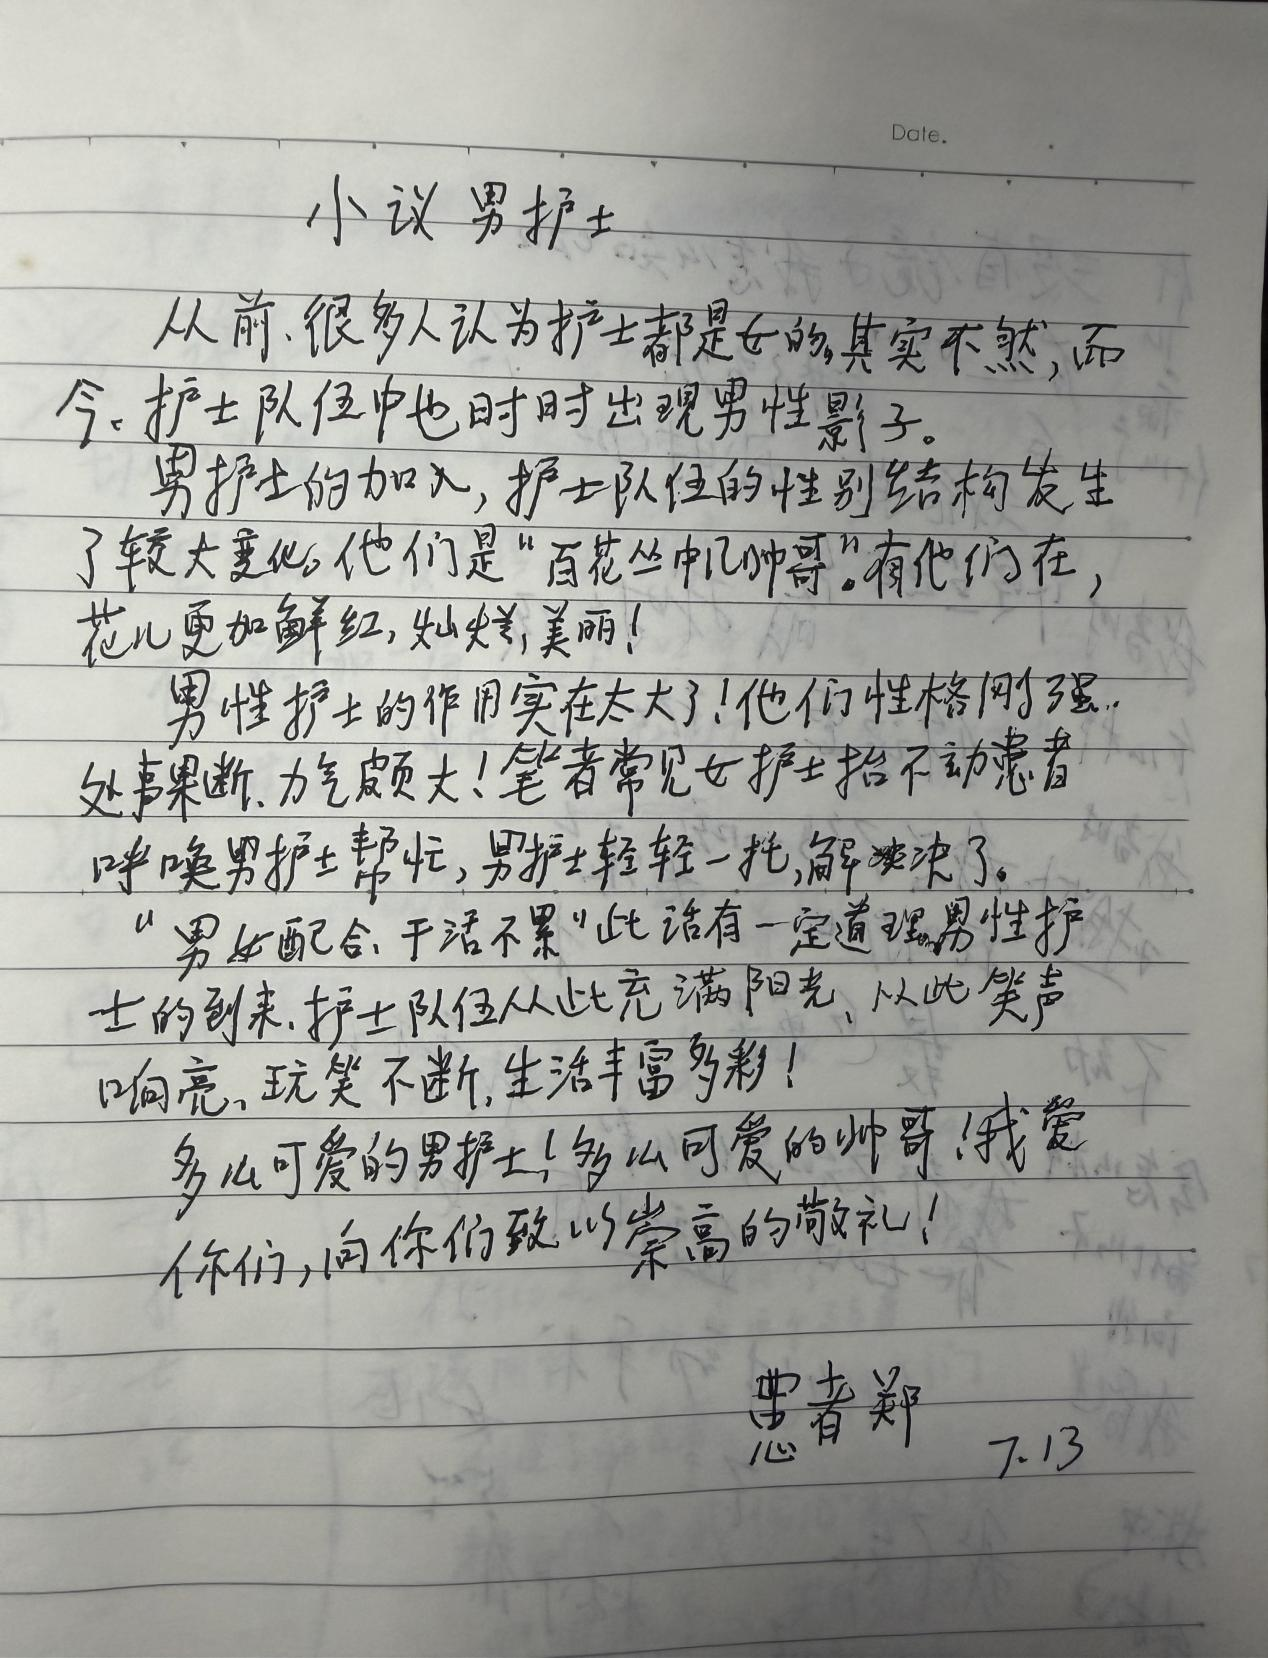 Date.
小议男护士
从前、很多人认为护士都是女的,其实不然,而
今、护士队伍中也时时出现男性影子。
男护士的加入,护士队伍的性别结构发生
了较大变化。他们是“百花丛中几帅哥”。有他们在,
花儿更加鲜红,灿烂,美丽!
男性护士的作用实在太大了!他们性格刚强..
处事果断、力气颇大!笔者常见女护士抬不动患者
呼唤男护士帮忙,男护士轻轻一托,解决了。
“男女配合、干活不累”此话有一定道理。男性护
士的到来、护士队伍从此充满阳光、从此笑声
响亮、玩笑不断,生活丰富多彩!
多么可爱的男护士!多么可爱的帅哥!我爱
你们,向你们致以崇高的敬礼!
患者郑
7.13